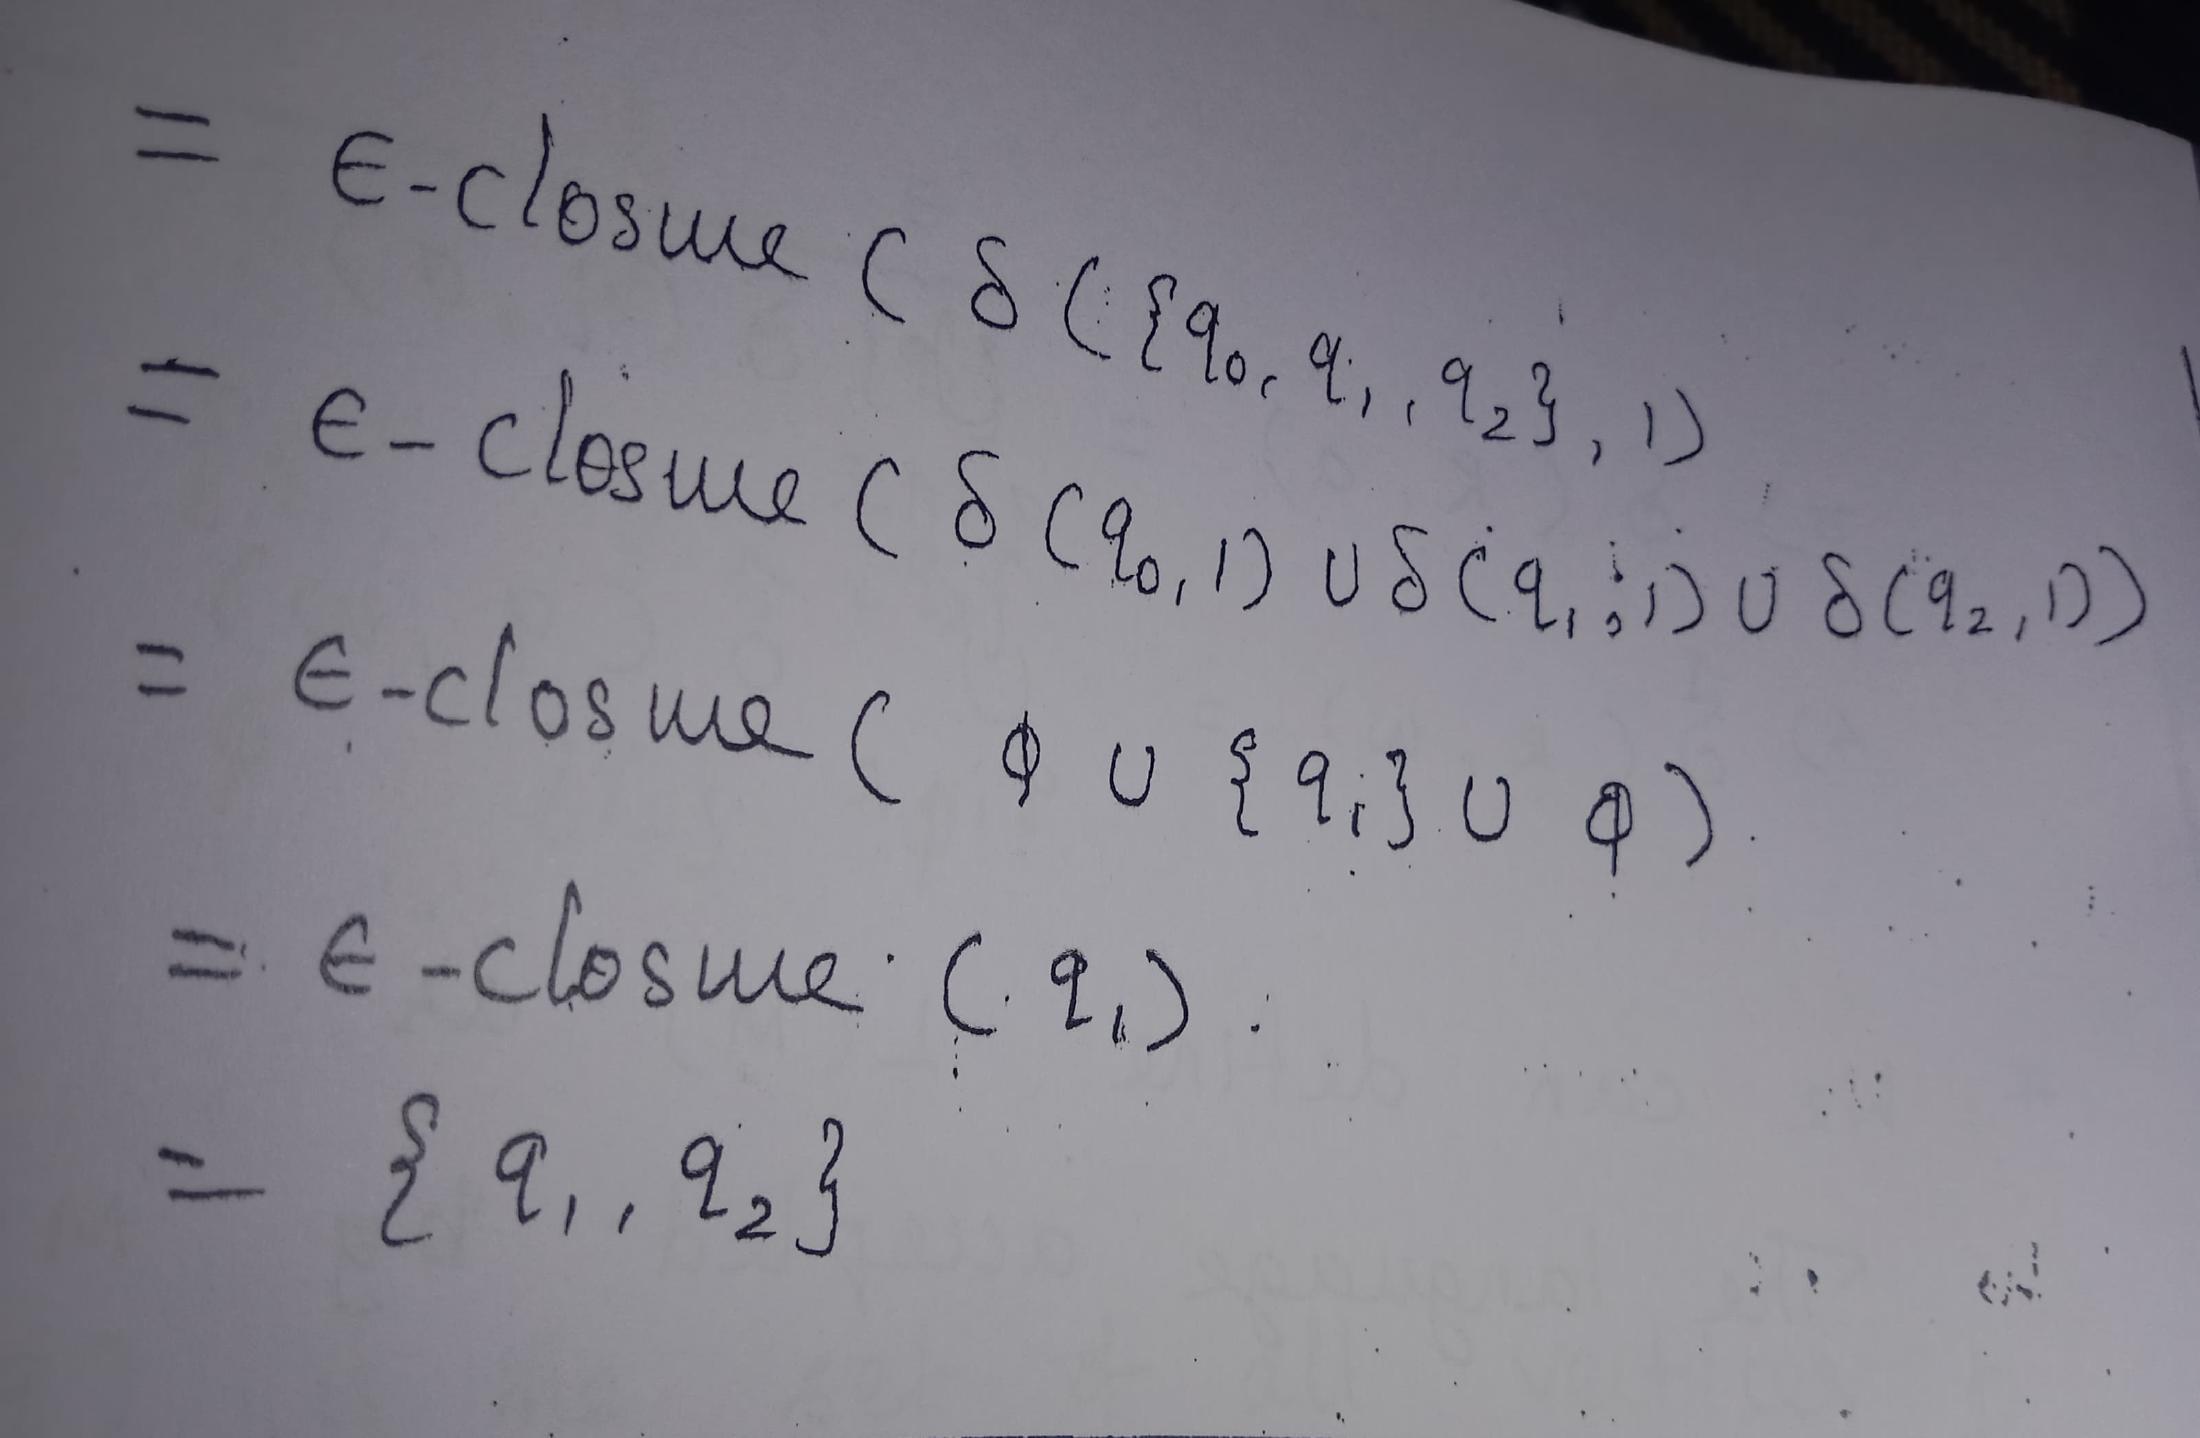 = ϵ-closure ( δ ( {q₀, q₁, q₂}, 1)
= ϵ-closure ( δ (q₀, 1) ∪ δ (q₁, 1) ∪ δ (q₂, 1))
= ϵ-closure ( ϕ ∪ {q₁} ∪ ϕ )
= ϵ-closure (q₁)
= {q₁, q₂}